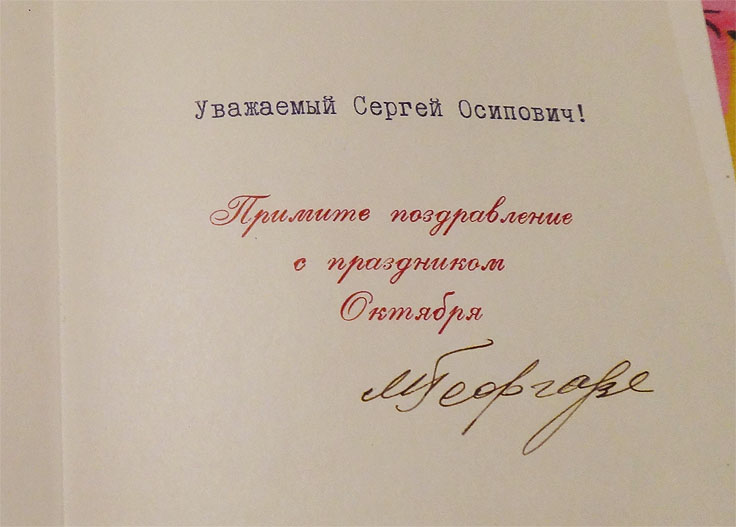 Уважаемый Сергей Осипович!
Примите поздравление
с праздником
Октября
МГеоргадзе